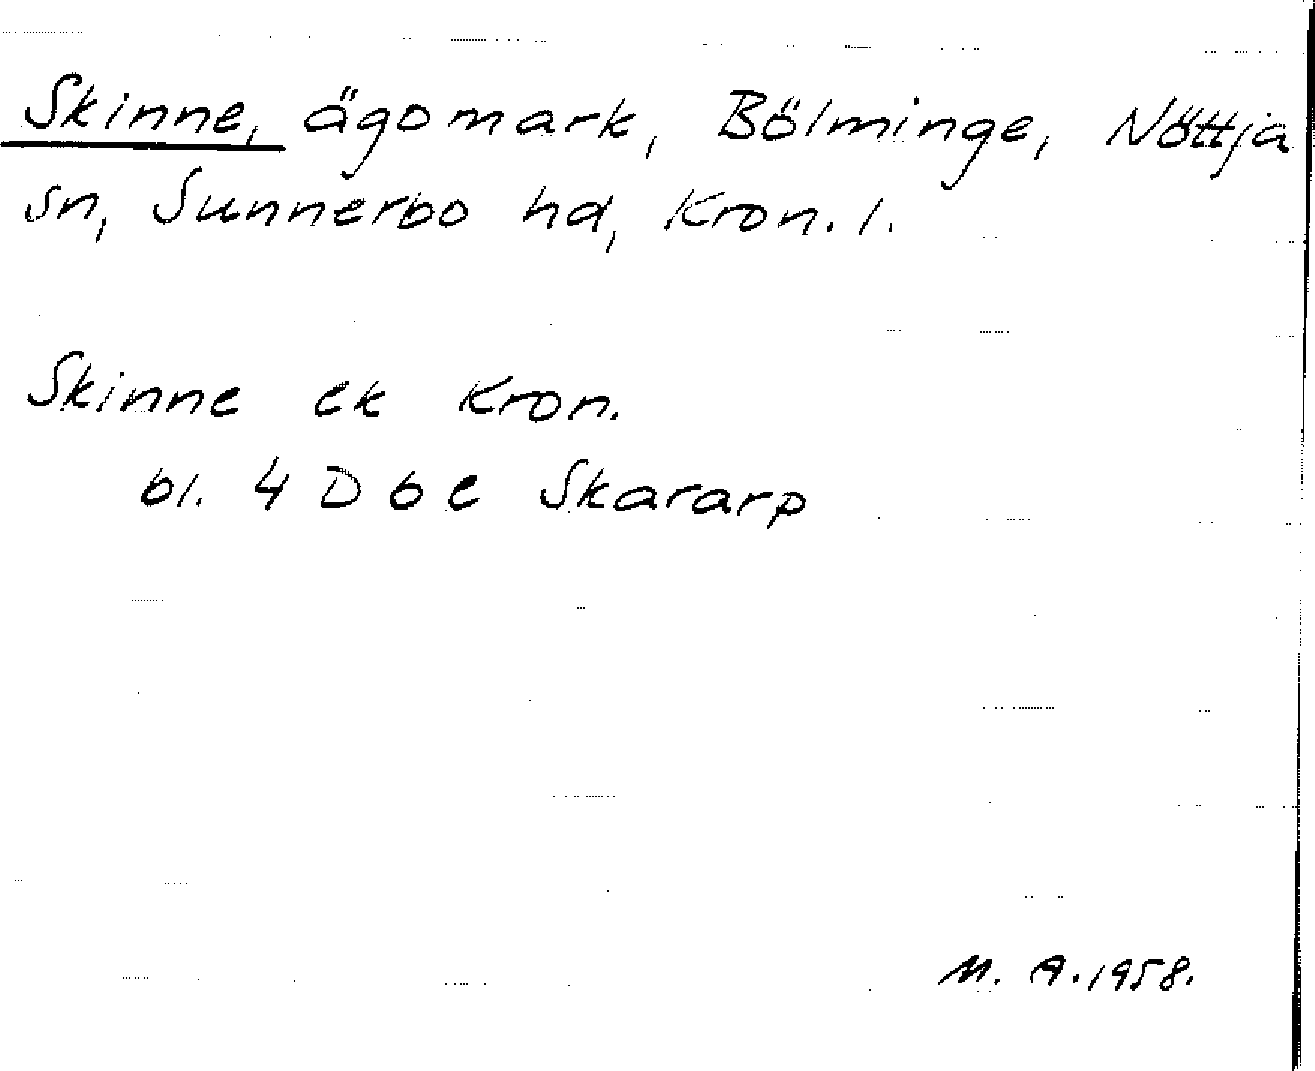 Skinne, ägomark, Bölminge, Nöttja
sn, Sunnerbo hd, Kron. l.
Skinne ek Kron.
bl. 4 D 6 e Skararp
M. A. 1958.